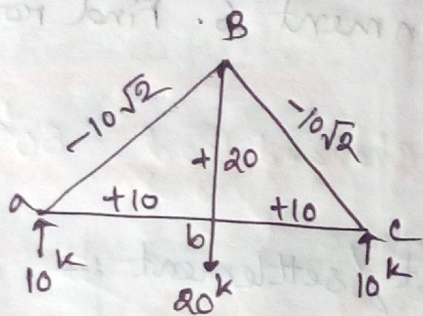 B
-10√2
-10√2
+20
a
+10
+10
b
c
10 k
20 k
10 k